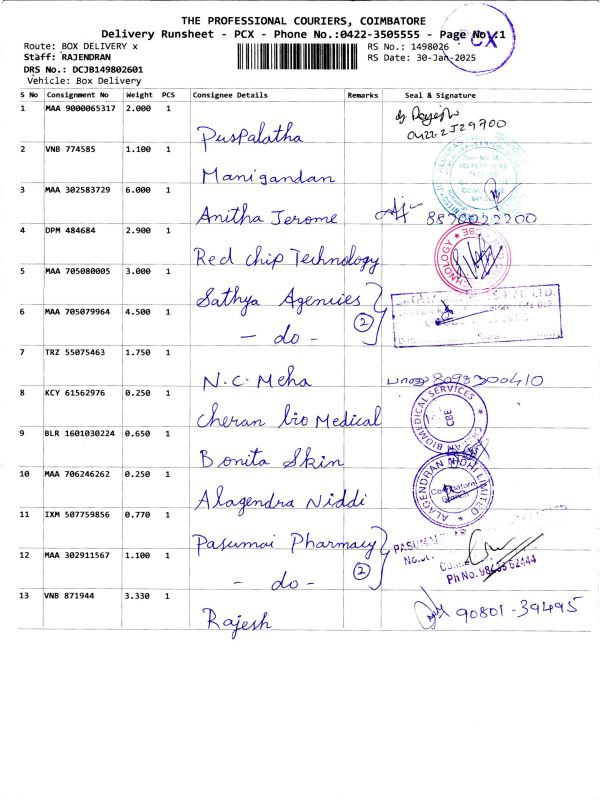 THE PROFESSIONAL COURIERS, COIMBATORE
Delivery Runsheet - PCX - Phone No.:0422-3505555 - Page No.:1
CX
Route: BOX DELIVERY x
RS No.: 1498026
Staff: RAJENDRAN
RS Date: 30-Jan-2025
DRS No.: DCJB149802601
Vehicle: Box Delivery
S No Consignment No Weight PCS Consignee Details Remarks Seal & Signature
1 MAA 9000065317 2.000 1 Puspalatha
0422-2529700
2 VNB 774585 1.100 1 Manigandan
3 MAA 302583729 6.000 1 Anitha Jerome 8870022200
4 DPM 484684 2.900 1 Red chip Technology
5 MAA 705080005 3.000 1 Sathya Agencies
6 MAA 705079964 4.500 1 - do - 2
7 TRZ 55075463 1.750 1 N.C. Meha 8098300410
8 KCY 61562976 0.250 1 Cheran bio Medical
BIOMEDICAL SERVICES CBE
9 BLR 1601030224 0.650 1 Bonita Skin
10 MAA 706246262 0.250 1 Alagendra Niddi
ALAGENDRAN NIDHI LIMITED Coimbatore Branch
11 IXM 507759856 0.770 1 Pasumai Pharmacy
12 MAA 302911567 1.100 1 - do - 2
Ph No.
13 VNB 871944 3.330 1 Rajesh 90801-39495